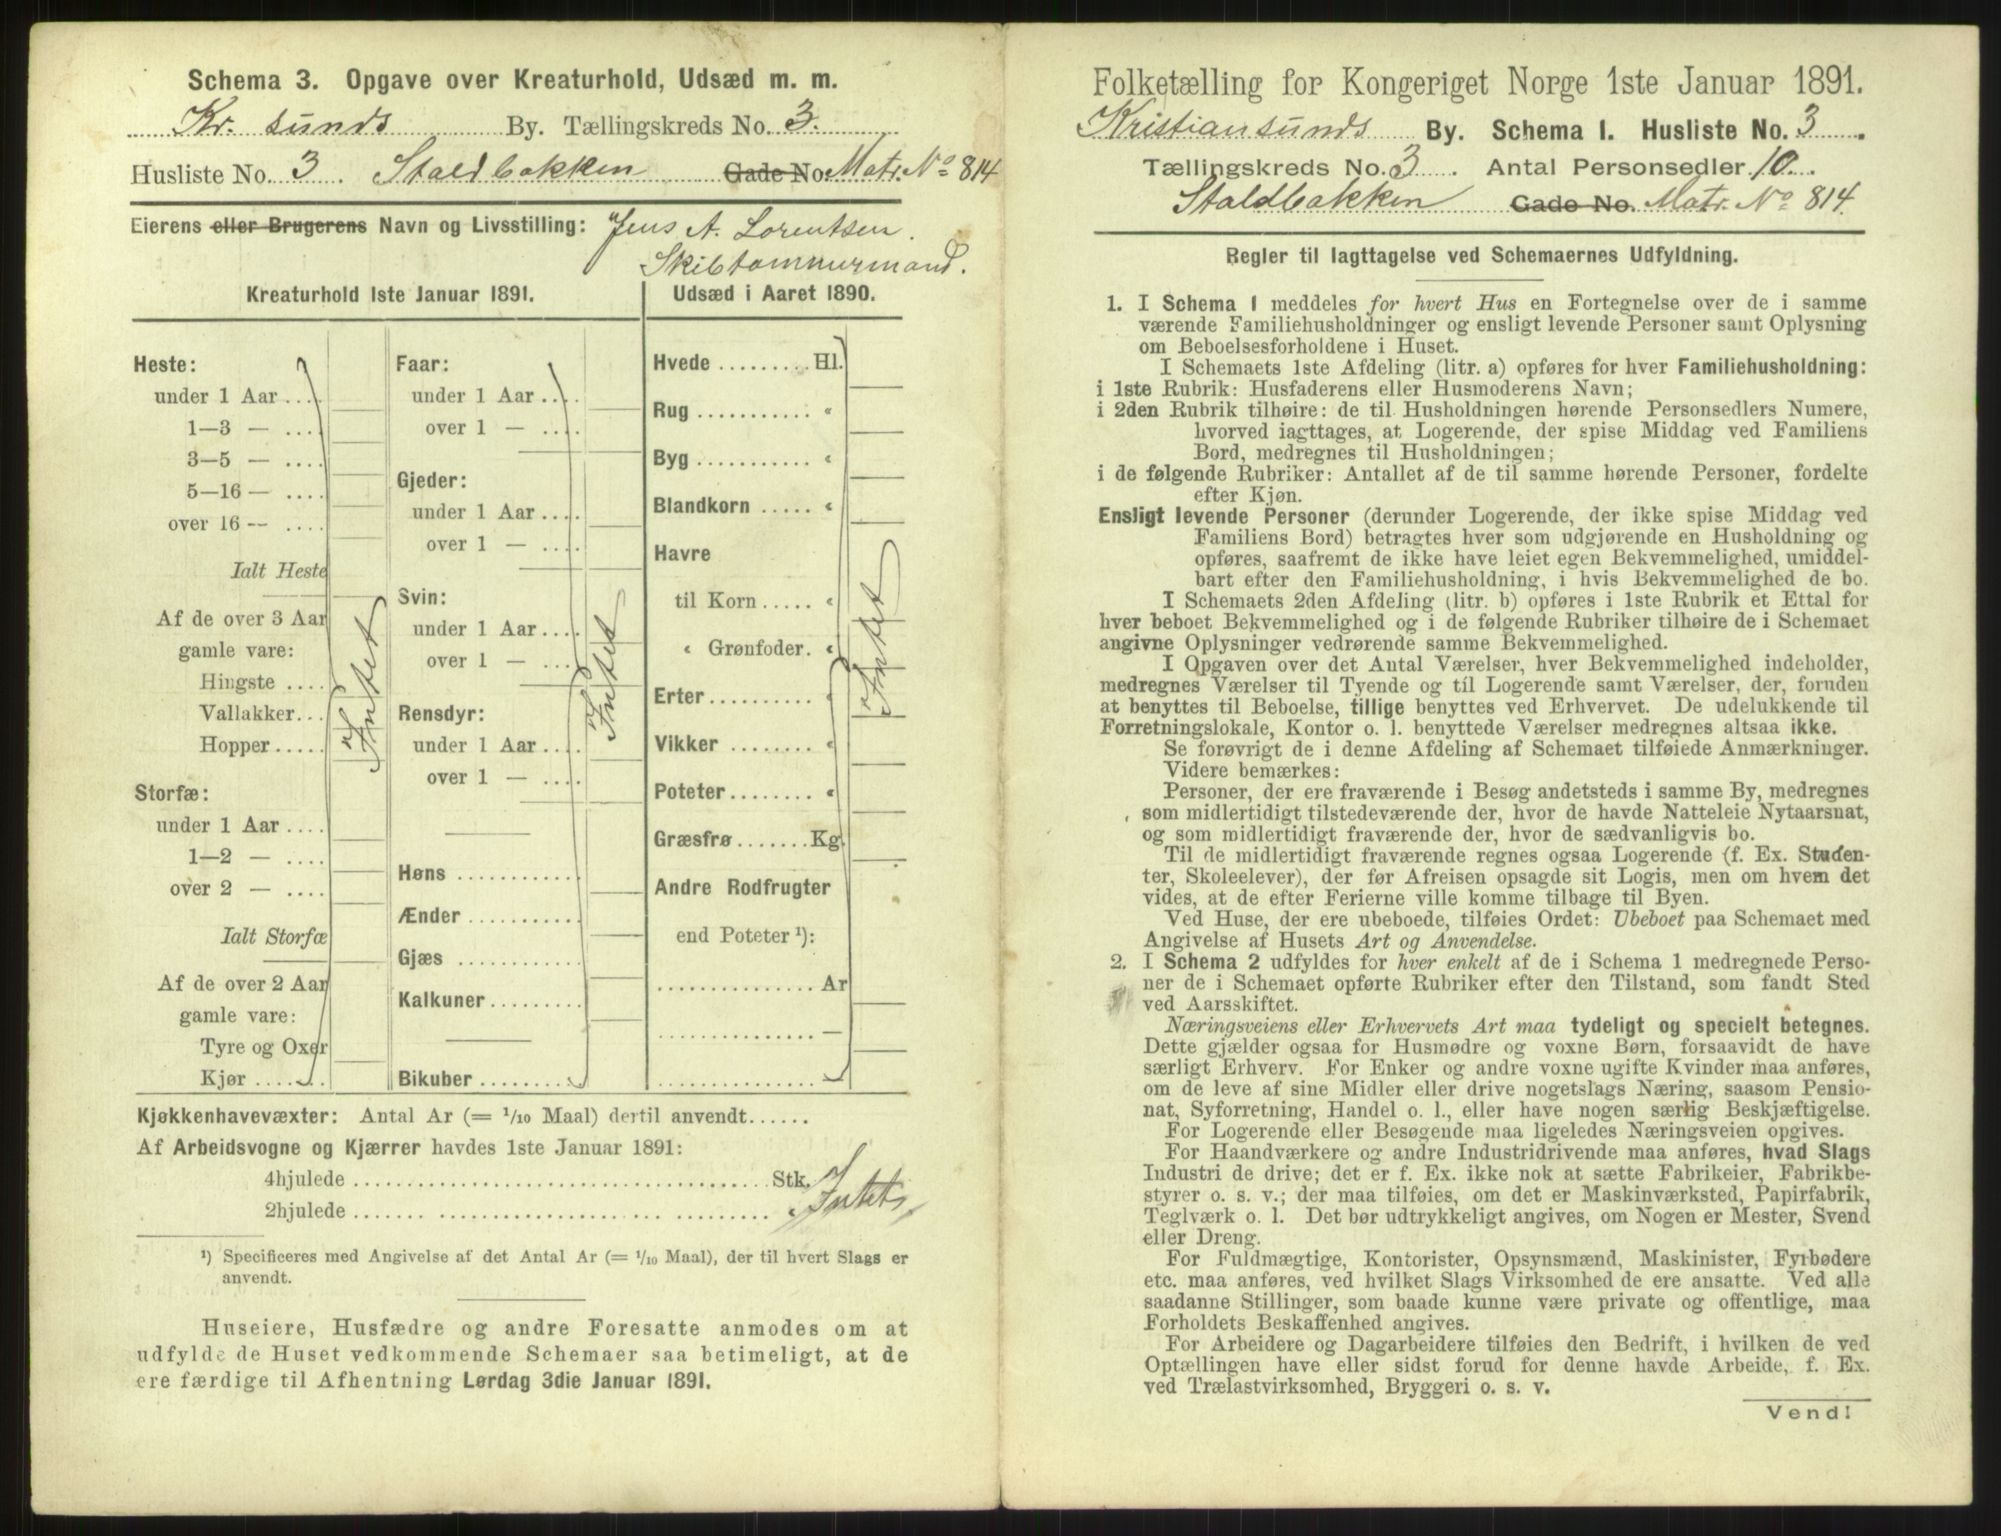 Schema 3. Opgave over Kreaturhold, Udsæd m. m.
Kr. sunds By. Tællingskreds No. 3.
Husliste No. 3. Staldbakken Gade No. Matr. No 814
Eierens eller Brugerens Navn og Livsstilling: Jens A. Lorentsen.
Skibtømmermand.
Kreaturhold 1ste Januar 1891.
Heste:
under 1 Aar ....
1—3 — ....
3—5 — ....
5—16 — ....
over 16 — ....
Ialt Heste
Af de over 3 Aar
gamle vare:
Hingste ....
Vallakker...
Hopper.....
Intet
Storfæ:
under 1 Aar ....
1—2 — ....
over 2 — ....
Ialt Storfæ
Af de over 2 Aar
gamle vare:
Tyre og Oxer
Kjør ......
Faar:
under 1 Aar ....
over 1 — ....
Gjeder:
under 1 Aar ....
over 1 — ....
Svin:
under 1 Aar ....
over 1 — ....
Intet
Rensdyr:
under 1 Aar ....
over 1 — ....
Høns ............
Ænder ...........
Gjæs ............
Kalkuner.........
Bikuber ..........
Udsæd i Aaret 1890.
Hvede ......... Hl.
Rug ........... "
Byg ........... "
Blandkorn ..... "
Havre
til Korn ..... "
" Grønfoder. "
Intet
Erter .......... "
Vikker ........ "
Poteter ........ "
Græsfrø ....... Kg.
Andre Rodfrugter
end Poteter ¹):
............... Ar
............... —
............... —
Kjøkkenhavevæxter: Antal Ar (= 1/10 Maal) dertil anvendt......
Af Arbeidsvogne og Kjærrer havdes 1ste Januar 1891:
4hjulede ........................................ Stk.
2hjulede ........................................ Intet
¹) Specificeres med Angivelse af det Antal Ar (= 1/10 Maal), der til hvert Slags er
anvendt.
Huseiere, Husfædre og andre Foresatte anmodes om at
udfylde de Huset vedkommende Schemaer saa betimeligt, at de
ere færdige til Afhentning Lørdag 3die Januar 1891.
Folketælling for Kongeriget Norge 1ste Januar 1891.
Kristiansunds By. Schema I. Husliste No. 3.
Tællingskreds No. 3. Antal Personsedler 10.
Staldbakken Gade No. Matr. No 814.
Regler til Iagttagelse ved Schemaernes Udfyldning.
1. I Schema 1 meddeles for hvert Hus en Fortegnelse over de i samme
værende Familiehusholdninger og ensligt levende Personer samt Oplysning
om Beboelsesforholdene i Huset.
I Schemaets 1ste Afdeling (litr. a) opføres for hver Familiehusholdning:
i 1ste Rubrik: Husfaderens eller Husmoderens Navn;
i 2den Rubrik tilhøire: de til Husholdningen hørende Personsedlers Numere,
hvorved iagttages, at Logerende, der spise Middag ved Familiens
Bord, medregnes til Husholdningen;
i de følgende Rubriker: Antallet af de til samme hørende Personer, fordelte
efter Kjøn.
Ensligt levende Personer (derunder Logerende, der ikke spise Middag ved
Familiens Bord) betragtes hver som udgjørende en Husholdning og
opføres, saafremt de ikke have leiet egen Bekvemmelighed, umiddel-
bart efter den Familiehusholdning, i hvis Bekvemmelighed de bo.
I Schemaets 2den Afdeling (litr. b) opføres i 1ste Rubrik et Ettal for
hver beboet Bekvemmelighed og i de følgende Rubriker tilhøire de i Schemaet
angivne Oplysninger vedrørende samme Bekvemmelighed.
I Opgaven over det Antal Værelser, hver Bekvemmelighed indeholder,
medregnes Værelser til Tyende og til Logerende samt Værelser, der, foruden
at benyttes til Beboelse, tillige benyttes ved Erhvervet. De udelukkende til
Forretningslokale, Kontor o. l. benyttede Værelser medregnes altsaa ikke.
Se forøvrigt de i denne Afdeling af Schemaet tilføiede Anmærkninger.
Videre bemærkes:
Personer, der ere fraværende i Besøg andetsteds i samme By, medregnes
som midlertidigt tilstedeværende der, hvor de havde Natteleie Nytaarsnat,
og som midlertidigt fraværende der, hvor de sædvanligvis bo.
Til de midlertidigt fraværende regnes ogsaa Logerende (f. Ex. Studen-
ter, Skoleelever), der før Afreisen opsagde sit Logis, men om hvem det
vides, at de efter Ferierne ville komme tilbage til Byen.
Ved Huse, der ere ubeboede, tilføies Ordet: Ubeboet paa Schemaet med
Angivelse af Husets Art og Anvendelse.
2. I Schema 2 udfyldes for hver enkelt af de i Schema 1 medregnede Perso-
ner de i Schemaet opførte Rubriker efter den Tilstand, som fandt Sted
ved Aarsskiftet.
Næringsveiens eller Erhvervets Art maa tydeligt og specielt betegnes.
Dette gjælder ogsaa for Husmødre og voxne Børn, forsaavidt de have
særligt Erhverv. For Enker og andre voxne ugifte Kvinder maa anføres,
om de leve af sine Midler eller drive nogetslags Næring, saasom Pensio-
nat, Syforretning, Handel o. l., eller have nogen særlig Beskjæftigelse.
For Logerende eller Besøgende maa ligeledes Næringsveien opgives.
For Haandværkere og andre Industridrivende maa anføres, hvad Slags
Industri de drive; det er f. Ex. ikke nok at sætte Fabrikeier, Fabrikbe-
styrer o. s. v.; der maa tilføies, om det er Maskinværksted, Papirfabrik,
Teglværk o. l. Det bør udtrykkeligt angives, om Nogen er Mester, Svend
eller Dreng.
For Fuldmægtige, Kontorister, Opsynsmænd, Maskinister, Fyrbødere
etc. maa anføres, ved hvilket Slags Virksomhed de ere ansatte. Ved alle
saadanne Stillinger, som baade kunne være private og offentlige, maa
Forholdets Beskaffenhed angives.
For Arbeidere og Dagarbeidere tilføies den Bedrift, i hvilken de ved
Optællingen have eller sidst forud for denne havde Arbeide, f. Ex.
ved Trælastvirksomhed, Bryggeri o. s. v.
Vend!